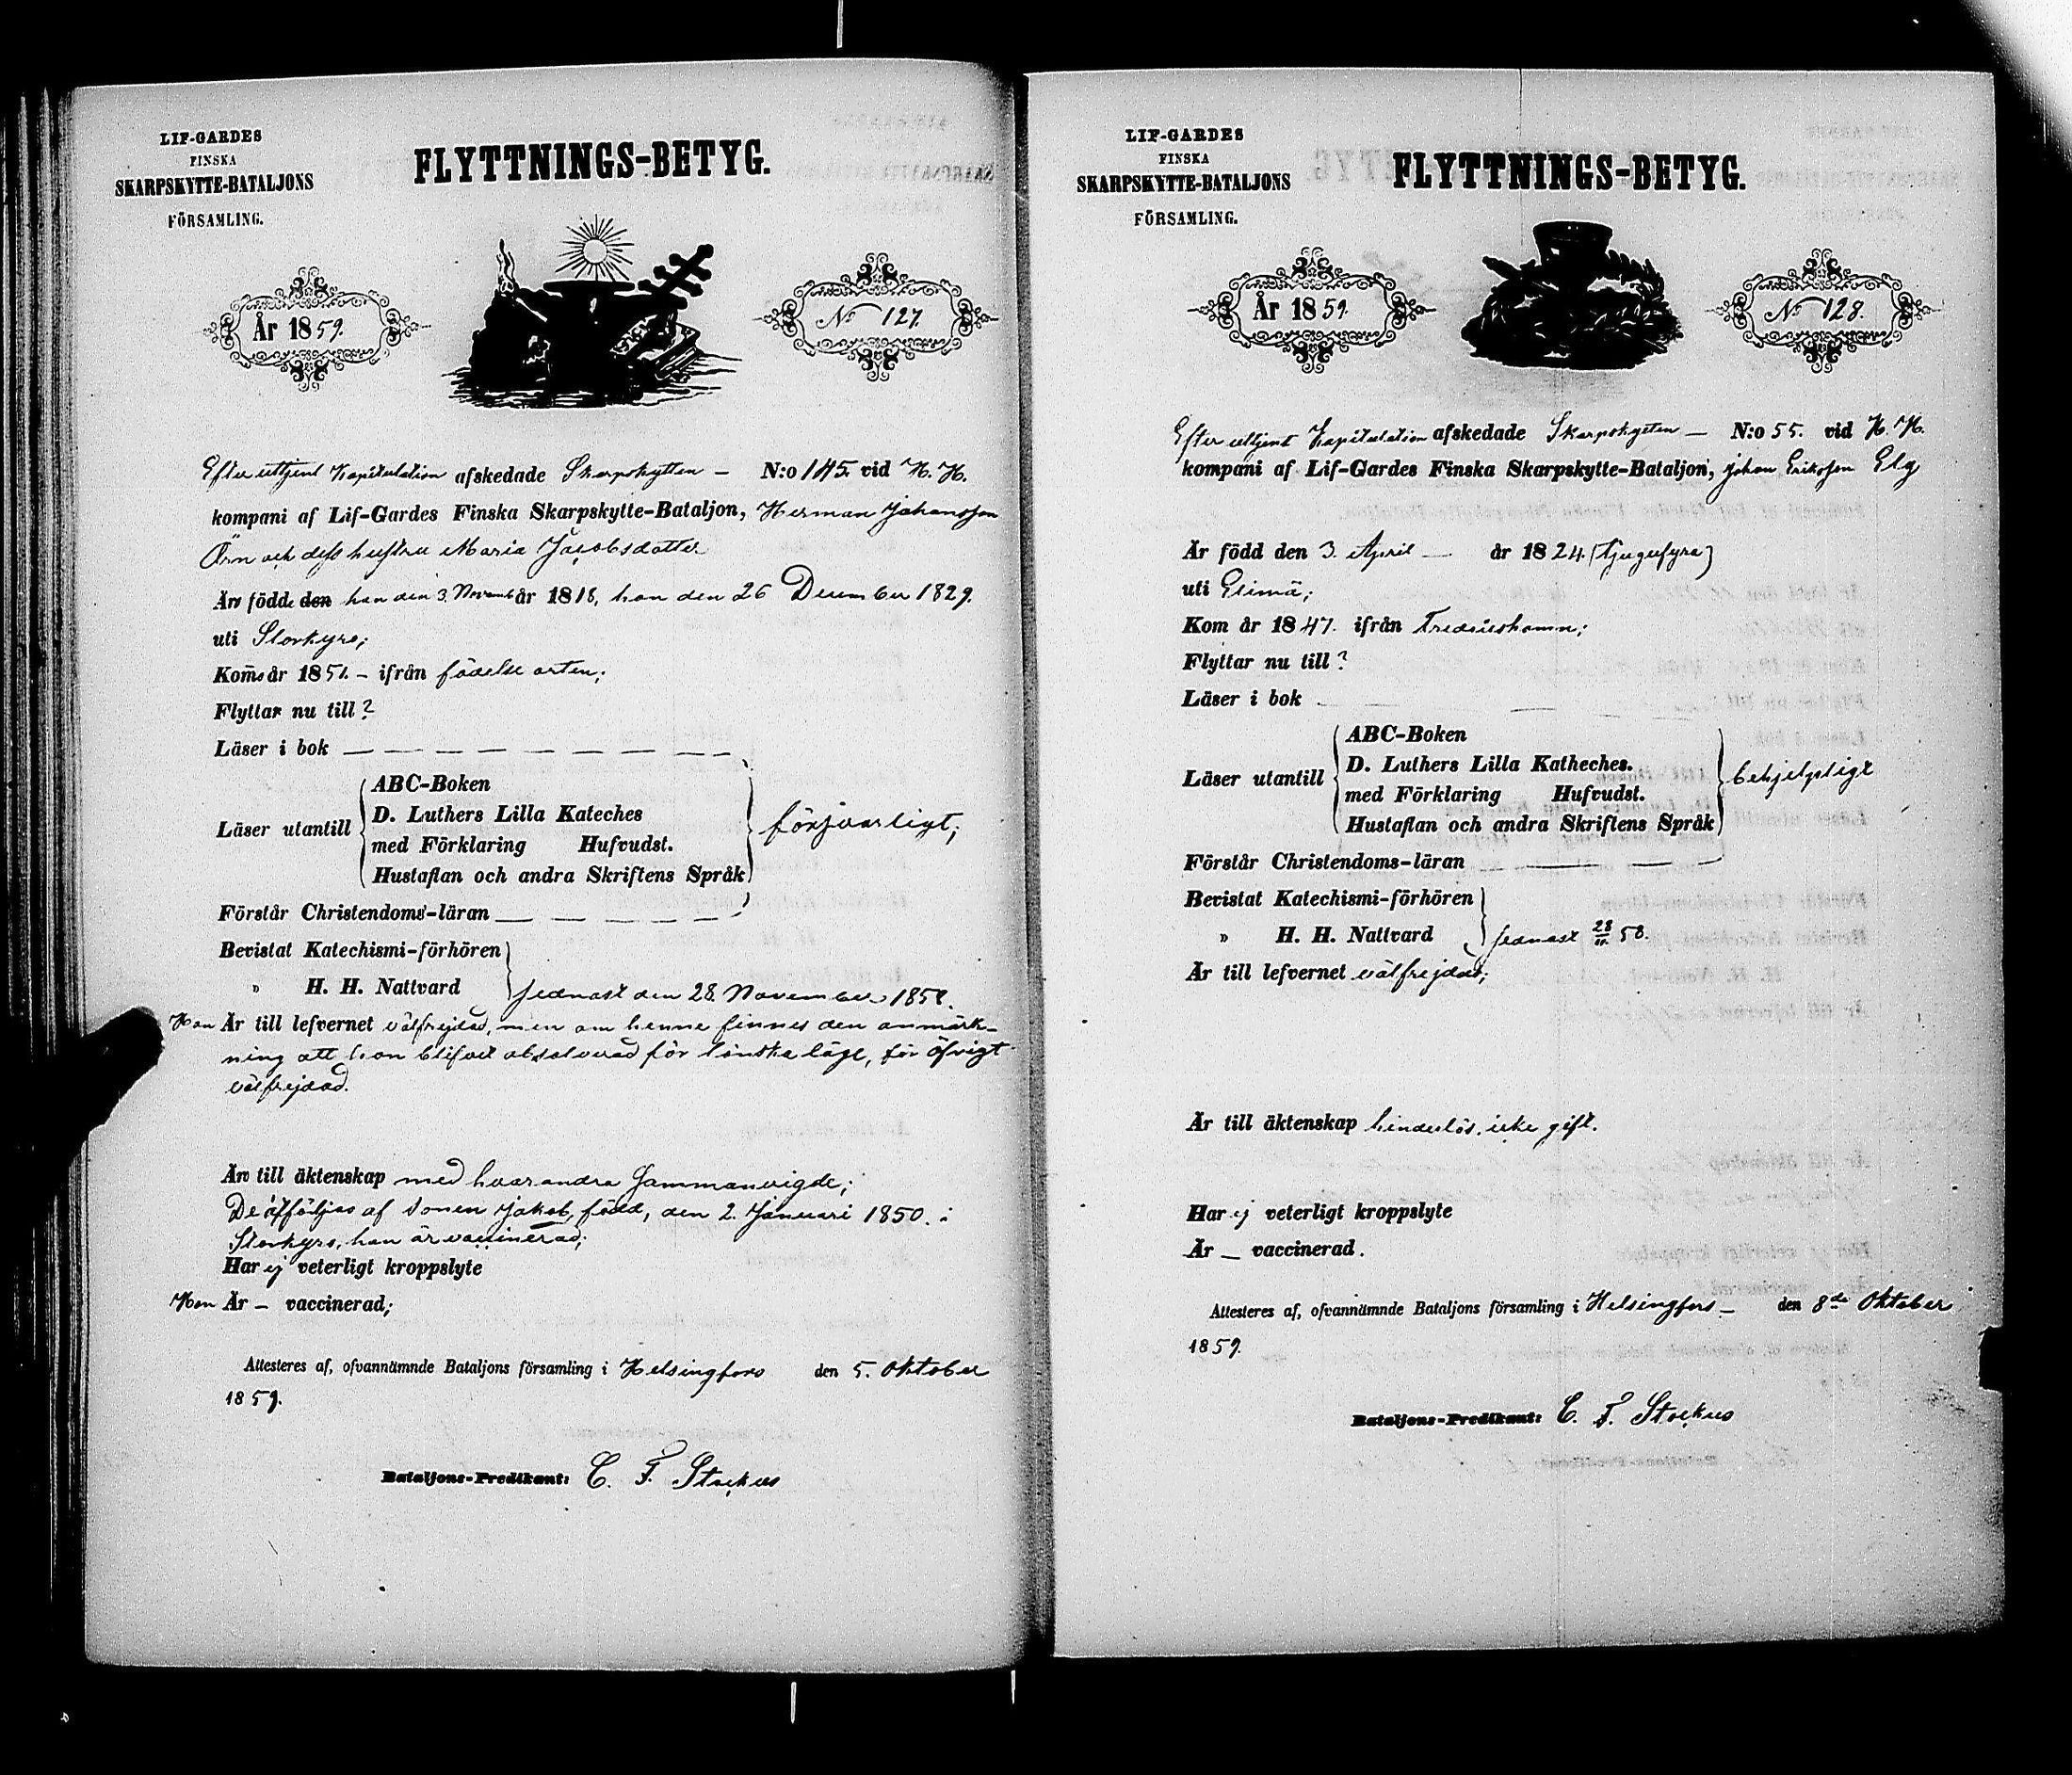 LIF-GARDES
FINSKA
SKARPSKYTTE-BATALJONS
FÖRSAMLING.
FLYTTNINGS-BETYG.
År 1859.
No 127.
Efter uttjent Kapitulation afskedade Skarpskytten – N:o 145. vid H. H.
kompani af Lif-Gardes Finska Skarpskytte-Bataljon, Herman Johansson
Örn och dess hustru Maria Jacobsdotter
Äro födde den han den 3. Novemb år 1818, hon den 26 December 1829.
uti Storkyro;
Komo år 1851. – ifrån födelse orten;
Flyttar nu till?
Läser i bok — — — — — — — —
Läser utantill
ABC-Boken
D. Luthers Lilla Kateches
med Förklaring Hufvudst.
Hustaflan och andra Skriftens Språk
försvarligt;
Förstår Christendoms-läran — — — —
Bevistat Katechismi-förhören
" H. H. Nattvard
sednast den 28. November 1858.
Han Är till lefvernet välfrejdad, men om henne finnes den anmärk-
ning att hon blifvit absolverad för lönska läge, för öfrigt
välfrejdad.
Äro till äktenskap med hvarandra sammanvigde;
De åtföljas af sonen Jakob, född, den 2. Januari 1850. i
Storkyro, han är vaccinerad;
Har ej veterligt kroppslyte
Hon Är – vaccinerad;
Attesteres af, ofvannämnde Bataljons församling i Helsingfors den 5. Oktober
1859.
Bataljons-Predikant: C. F. Stockus
LIF-GARDES
FINSKA
SKARPSKYTTE-BATALJONS
FÖRSAMLING.
FLYTTNINGS-BETYG.
År 1859.
No 128.
Efter uttjent Kapitulation afskedade Skarpskytten — N:o 55. vid H. H.
kompani af Lif-Gardes Finska Skarpskytte-Bataljon, Johan Eriksson Elg
Är född den 3. April — år 1824. (Tjugufyra)
uti Elimä;
Kom år 1847. ifrån Fredrikshamn;
Flyttar nu till?
Läser i bok
Läser utantill
ABC-Boken
D. Luthers Lilla Katheches.
med Förklaring Hufvudst.
Hustaflan och andra Skriftens Språk
behjelpligt
Förstår Christendoms-läran — — —
Bevistat Katechismi-förhören
" H. H. Nattvard
sednast 28/11 58.
Är till lefvernet välfrejdad;
Är till äktenskap hinderlös, icke gift.
Har ej veterligt kroppslyte
Är – vaccinerad.
Attesteres af, ofvannämnde Bataljons församling i Helsingfors – den 8de Oktober
1859.
Bataljons-Predikant: C. F. Stockus